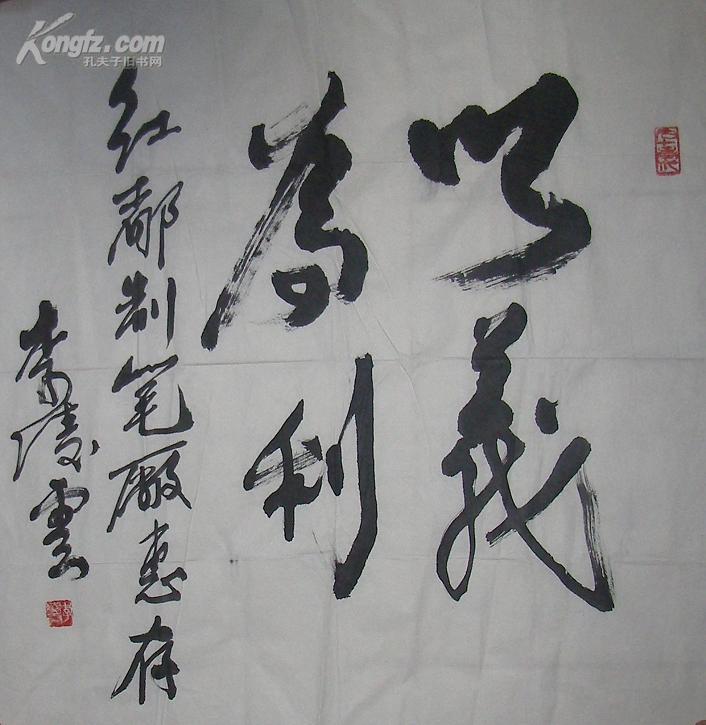 以義
為利
红都制笔廠惠存
李凌雲
Kongfz.com
孔夫子旧书网